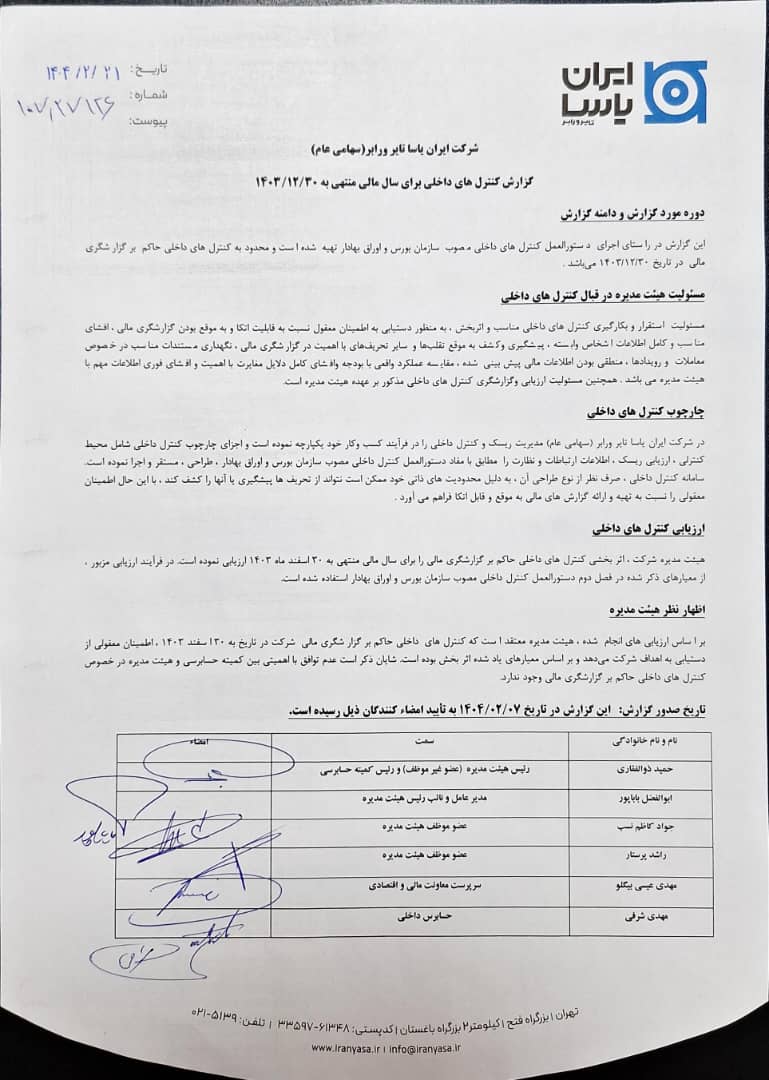 ایران
یاسا
تایر و رابر
تاریخ: ۱۴۰۴/۲/۲۱
شماره: ۱۰۷/۲۷/۱۲۶
پیوست:
شرکت ایران یاسا تایر ورابر(سهامی عام)
گزارش کنترل های داخلی برای سال مالی منتهی به ۱۴۰۳/۱۲/۳۰
دوره مورد گزارش و دامنه گزارش
این گزارش در راستای اجرای دستورالعمل کنترل های داخلی مصوب سازمان بورس و اوراق بهادار تهیه شده است و محدود به کنترل های داخلی حاکم بر گزارشگری
مالی در تاریخ ۱۴۰۳/۱۲/۳۰ می‌باشد .
مسئولیت هیئت مدیره در قبال کنترل های داخلی
مسئولیت استقرار و بکارگیری کنترل های داخلی مناسب و اثربخش ، به منظور دستیابی به اطمینان معقول نسبت به قابلیت اتکا و به موقع بودن گزارشگری مالی ، افشای
مناسب و کامل اطلاعات اشخاص وابسته ، پیشگیری وکشف به موقع تقلب‌ها و سایر تحریف‌های با اهمیت در گزارشگری مالی ، نگهداری مستندات مناسب در خصوص
معاملات و رویدادها ، منطقی بودن اطلاعات مالی پیش بینی شده ، مقایسه عملکرد واقعی با بودجه وافشای کامل دلایل مغایرت با اهمیت و افشای فوری اطلاعات مهم با
هیئت مدیره می باشد . همچنین مسئولیت ارزیابی وگزارشگری کنترل های داخلی مذکور بر عهده هیئت مدیره است.
چارچوب کنترل های داخلی
در شرکت ایران یاسا تایر ورابر (سهامی عام) مدیریت ریسک و کنترل داخلی را در فرآیند کسب وکار خود یکپارچه نموده است و اجزای چارچوب کنترل داخلی شامل محیط
کنترلی ، ارزیابی ریسک ، اطلاعات ارتباطات و نظارت را مطابق با مفاد دستورالعمل کنترل داخلی مصوب سازمان بورس و اوراق بهادار ، طراحی ، مستقر و اجرا نموده است.
سامانه کنترل داخلی ، صرف نظر از نوع طراحی آن ، به دلیل محدودیت های ذاتی خود ممکن است نتواند از تحریف ها پیشگیری یا آنها را کشف کند ، با این حال اطمینان
معقولی را نسبت به تهیه و ارائه گزارش های مالی به موقع و قابل اتکا فراهم می آورد .
ارزیابی کنترل های داخلی
هیئت مدیره شرکت ، اثر بخشی کنترل های داخلی حاکم بر گزارشگری مالی را برای سال مالی منتهی به ۳۰ اسفند ماه ۱۴۰۳ ارزیابی نموده است. در فرآیند ارزیابی مزبور ،
از معیارهای ذکر شده در فصل دوم دستورالعمل کنترل داخلی مصوب سازمان بورس و اوراق بهادار استفاده شده است.
اظهار نظر هیئت مدیره
بر اساس ارزیابی های انجام شده ، هیئت مدیره معتقد است که کنترل های داخلی حاکم بر گزارشگری مالی شرکت در تاریخ به ۳۰ اسفند ۱۴۰۳ ، اطمینان معقولی از
دستیابی به اهداف شرکت می‌دهد و بر اساس معیارهای یاد شده اثر بخش بوده است. شایان ذکر است عدم توافق با اهمیتی بین کمیته حسابرسی و هیئت مدیره در خصوص
کنترل های داخلی حاکم بر گزارشگری مالی وجود ندارد.
تاریخ صدور گزارش: این گزارش در تاریخ ۱۴۰۴/۰۲/۰۷ به تأیید امضاء کنندگان ذیل رسیده است.
نام و نام خانوادگی سمت امضاء
حمید ذوالفقاری رئیس هیئت مدیره (عضو غیر موظف) و رئیس کمیته حسابرسی
ابوالفضل باباپور مدیر عامل و نائب رئیس هیئت مدیره
جواد کاظم نسب عضو موظف هیئت مدیره
راشد پرستار عضو موظف هیئت مدیره
مهدی عیسی بیگلو سرپرست معاونت مالی و اقتصادی
مهدی شرفی حسابرس داخلی
تهران | بزرگراه فتح | کیلومتر۲ بزرگراه باغستان | کدپستی: ۶۱۳۴۸-۳۳۵۹۷ | تلفن: ۵۱۳۹-۰۲۱
www.iranyasa.ir | info@iranyasa.ir